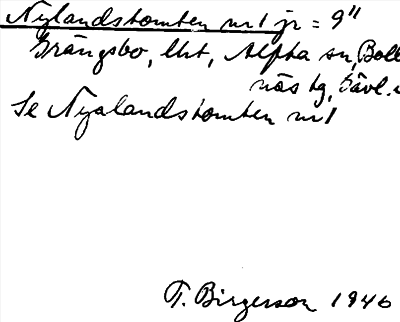 Nylandstomten nr 1 jr = 9"
Grängsbo, lht, Alfta sn, Boll
näs tg, Gävl.
Se Nyalandstomten nr 1
T. Birgerson 1946